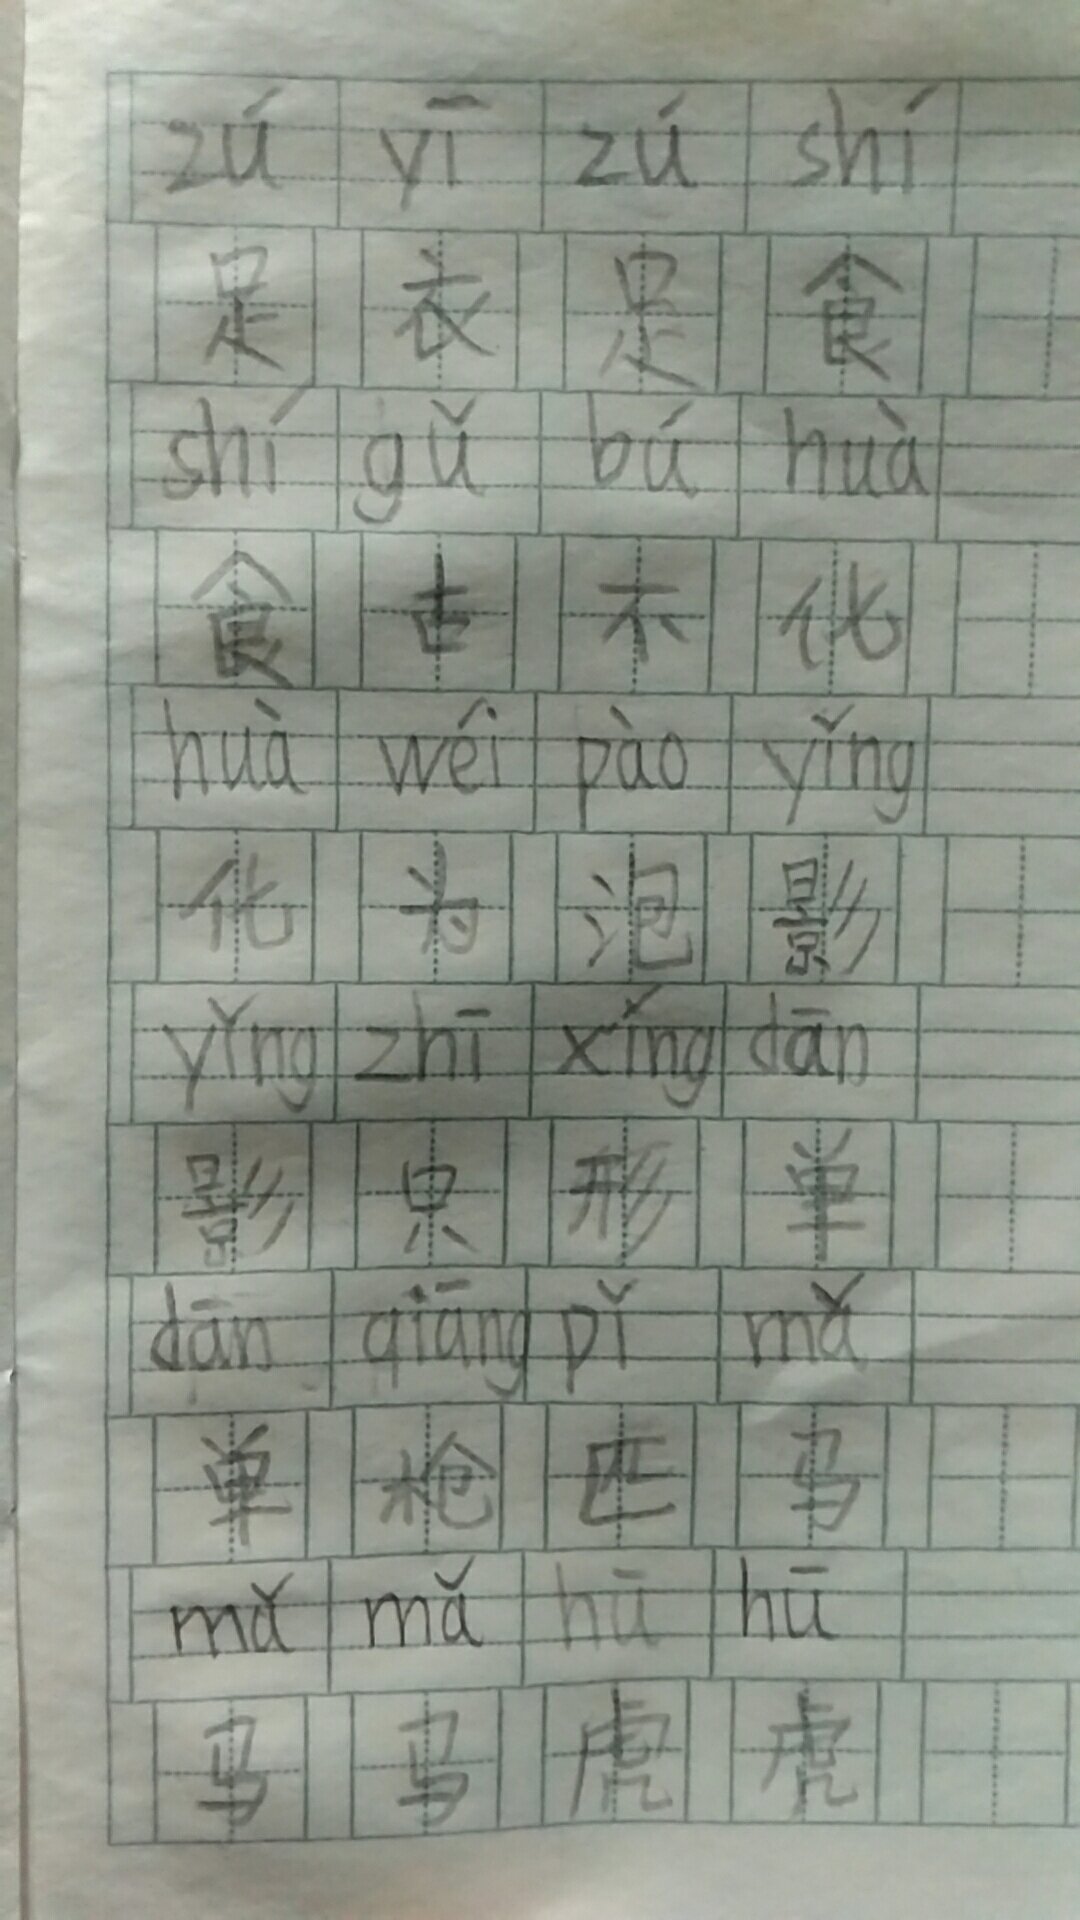 zú yī zú shí
足衣足食
shí gǔ bú huà
食古不化
huà wéi pào yǐng
化为泡影
yǐng zhī xíng dān
影只形单
dān qiāng pǐ mǎ
单枪匹马
mǎ mǎ hū hū
马马虎虎